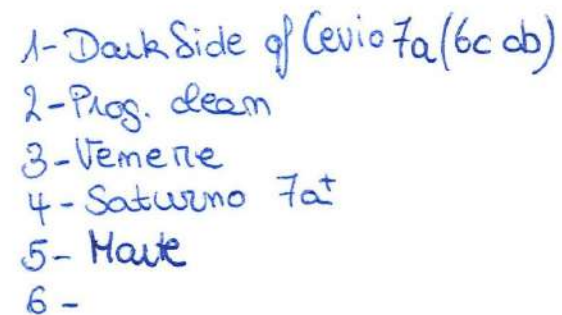 1-Dark Side of Cevio 7a (6c ob)
2-Prog. clean
3-Venere
4-Saturno 7a+
5-Marte
6-